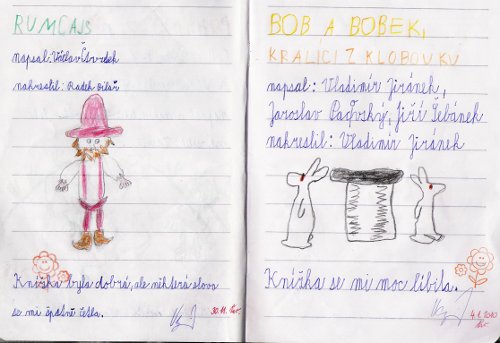 RUMCAJS
napsal: Václav Čtvrtek
nakreslil: Radek Pilař
Knížka byla dobrá, ale některá slova
se mi špatně četla.
30.11.
BOB A BOBEK,
KRÁLICI Z KLOBOUKU
napsal: Vladimír Jiránek,
Jaroslav Pacovský, Jiří Šebánek
nakreslil: Vladimír Jiránek
Knížka se mi moc líbila.
4.1.2010